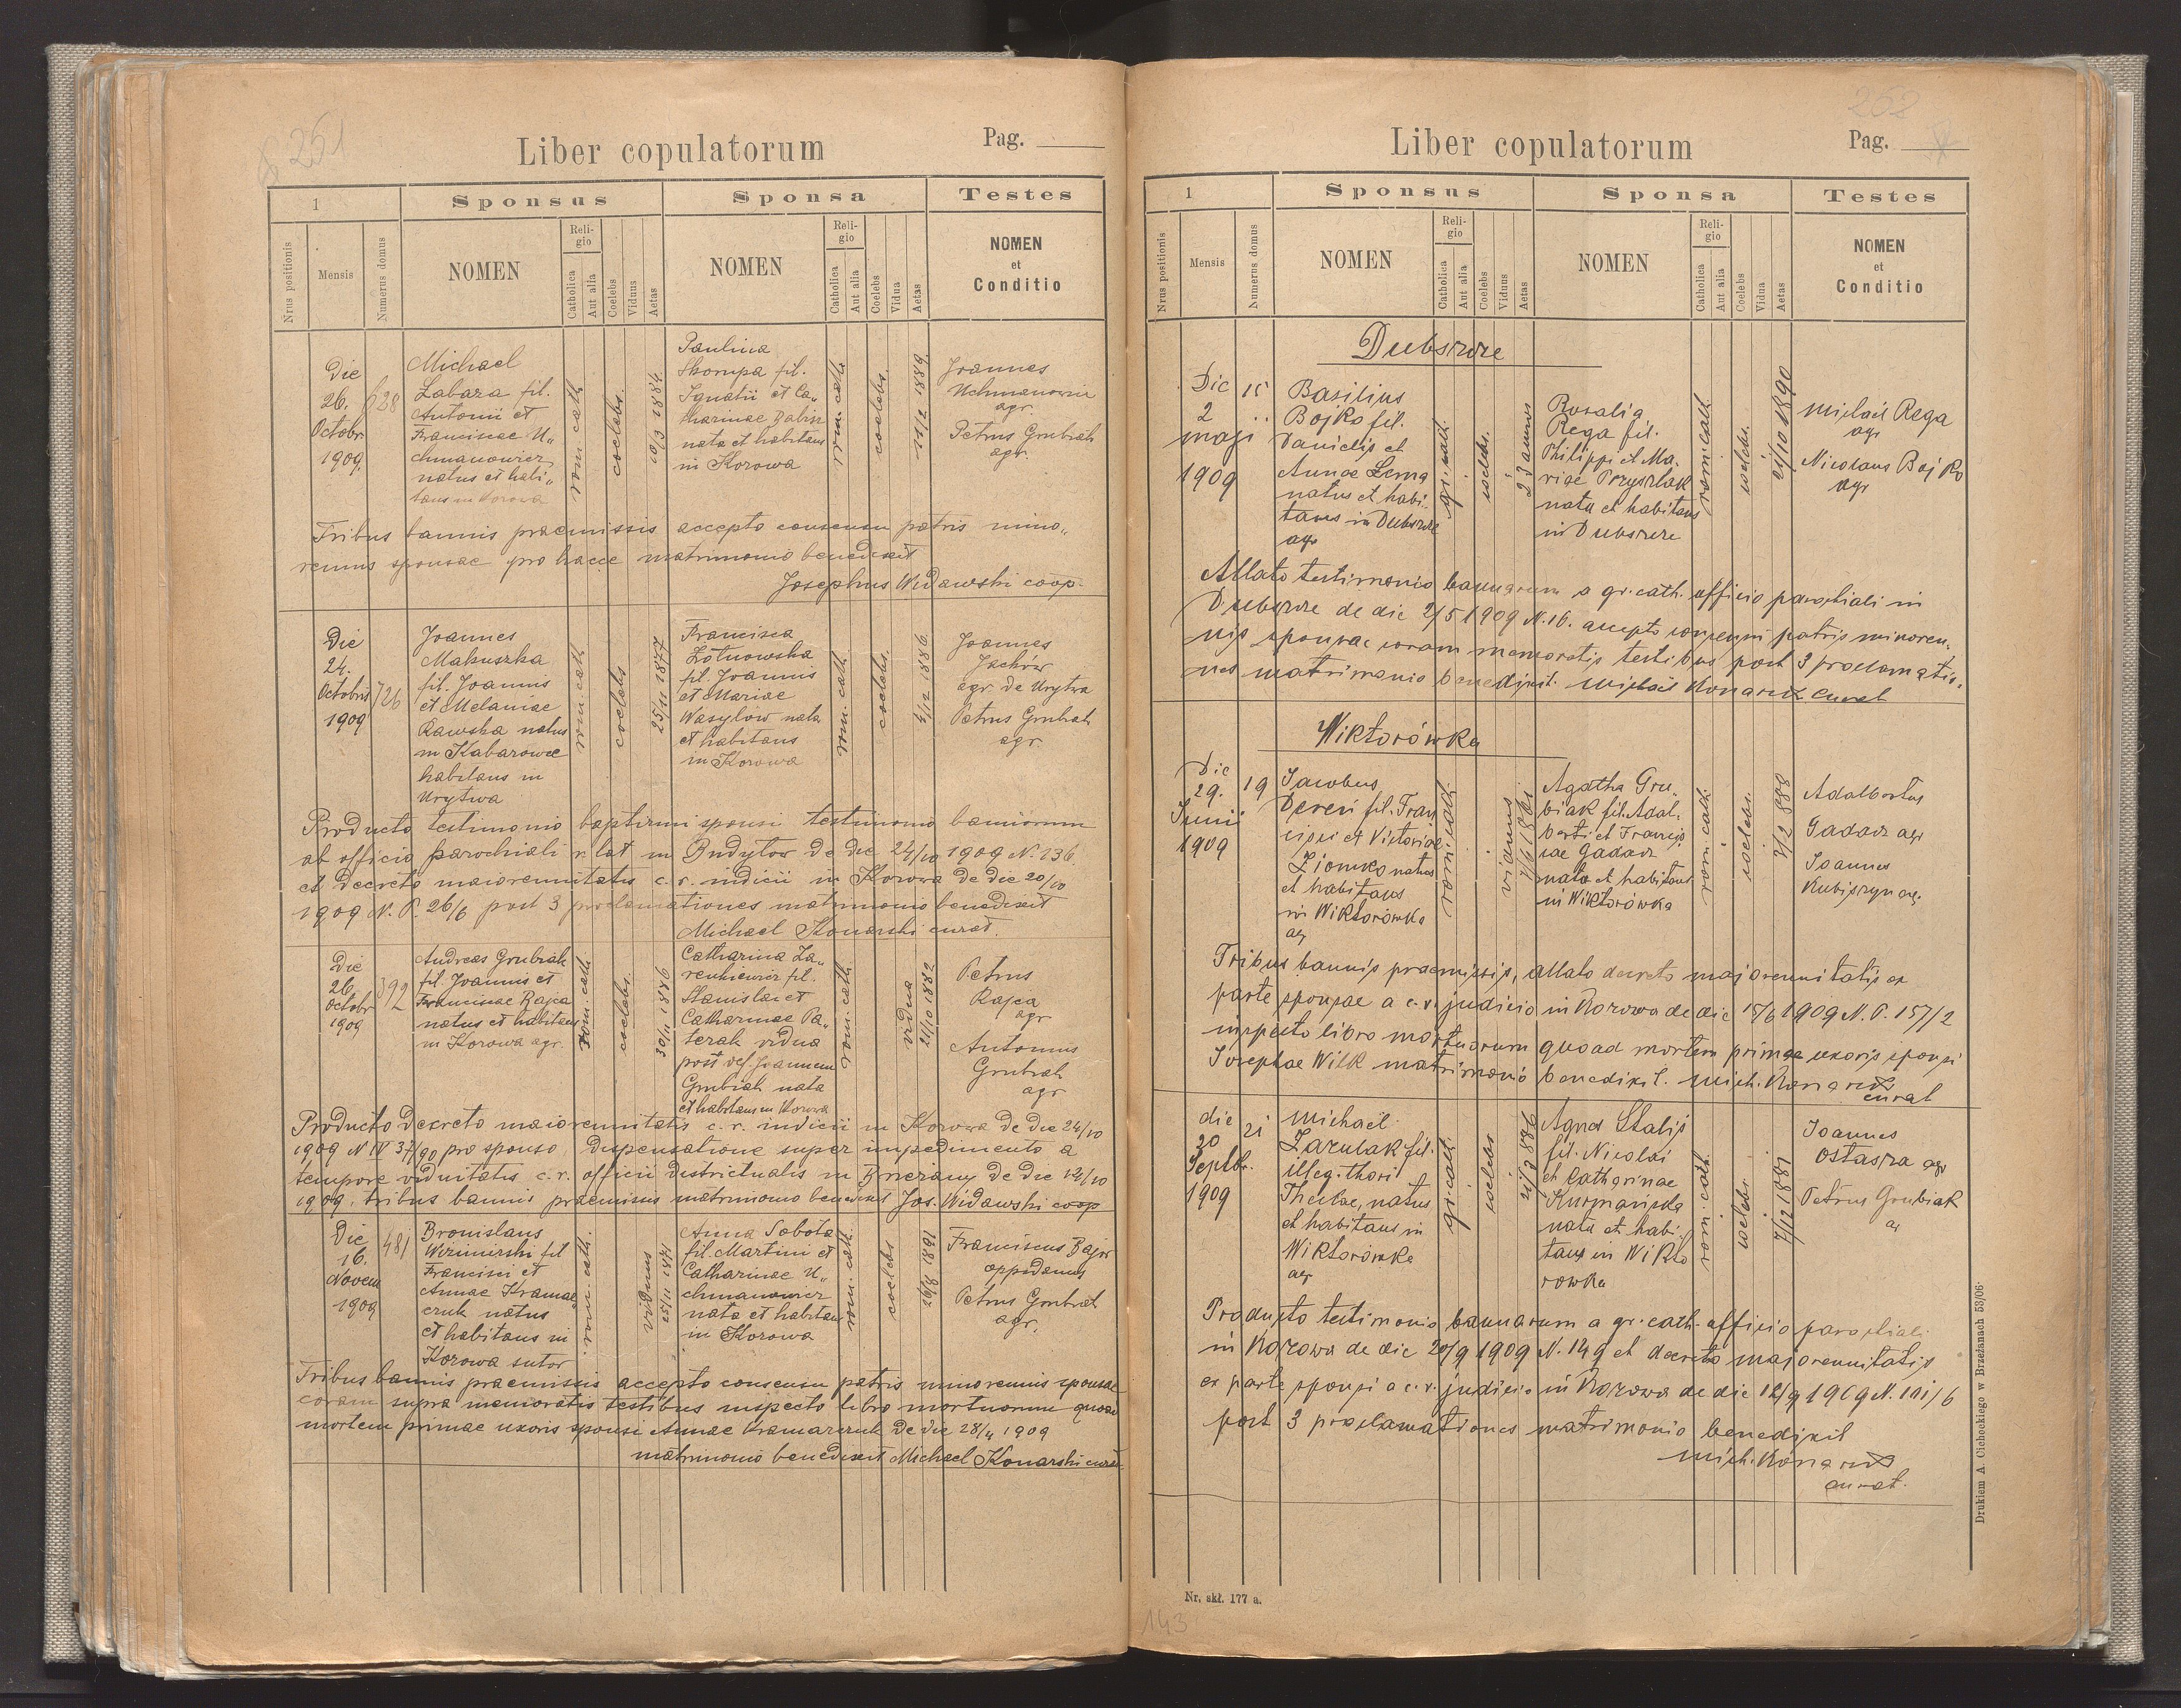 251
Liber copulatorum
Pag.
1
Sponsus
Sponsa
Testes
Nrus positionis
Mensis
Numerus domus
NOMEN
Religio
Catholica
Aut alia
Coelebs
Viduus
Aetas
NOMEN
Religio
Catholica
Aut alia
Coelebs
Vidua
Aetas
NOMEN
et
Conditio
Die
26.
Octobr
1909.
628
Michael
Labara fil.
Antonii et
Franciscae U„
chmanowicz
natus et habi„
tans in Korowa
rom. cath.
coelebs.
10/3 1884.
Paulina
Skorupa fil.
Ignatii et Ca„
tharinae Babin
nata et habitans
in Korowa
rom. cath.
coelebs.
1889.
Joannes
Uchmanowicz
agr.
Petrus Grubiak
agr.
Tribus bannis praemissis accepto consensu patris mino„
rennis sponsae pro hacce matrimonio benedixit
Josephus Widawski coop.
Die
24.
Octobris
1909
726
Joannes
Makuszka
fil. Joannis
et Melaniae
Rawska natus
in Kabarowce
habitans in
Urytwa
rom. cath.
coelebs
25/11 1877
Francisca
Zotnowska
fil. Joannis
et Mariae
Wasylów nata
et habitans
in Korowa
rom. cath.
coelebs.
4/12 1886.
Joannes
Jachów
agr. de Urytwa
Petrus Grubiak
agr.
Producto testimonio baptismi sponsi testimonio bannorum
ab officio parochiali r. lat in Budyłow de die 24/10 1909 N. 136.
et decreto maiorennitatis c. r. iudicii in Korowa de die 20/10
1909 N. P. 26/6 post 3 proclamationes matrimonio benedixit
Michael Konarski curat.
Die
26
Octobr
1909
392
Andreas Grubiak
fil. Joannis et
Franciscae Rajca
natus et habitans
in Korowa agr.
rom. cath.
coelebs.
30/11 1886
Catharina La„
renkiewicz fil.
Stanislai et
Catharinae Pa„
serak vidua
post def. Joannem
Grubiak nata
et habitans in Korowa
rom. cath.
vidua
21/10 1882
Petrus
Rajca
agr
Antonius
Grubiak
agr
Producto decreto maiorennitatis c. r. iudicii in Korowa de die 24/10
1909 N IV 37/90 pro sponso, dispensatione super impedimento a
tempore viduitatis c. r. officii districtualis in Brzeżany de die 12/10
1909, tribus bannis praemissis matrimonio benedixit Jos. Widawski coop
Die
16.
Novem
1909
481
Bronislaus
Wizimirski fil
Francisci et
Annae Kramar„
czuk natus
et habitans in
Korowa sutor
rom. cath.
viduus
25/11 1871
Anna Sobota
fil. Martini et
Catharinae U„
chmanowicz
nata et habitans
in Korowa
rom. cath.
coelebs
26/8 1891
Franciscus Bajor
oppidanus
Petrus Grubiak
agr.
Tribus bannis praemissis accepto consensu patris minorennis sponsae
coram supra memoratis testibus inspecto libro mortuorum quoad
mortem primae uxoris sponsi Annae Kramarczuk de die 28/4 1909
matrimonio benedixit Michael Konarski curat.
252
Liber copulatorum
Pag.
1
Sponsus
Sponsa
Testes
Nrus positionis
Mensis
Numerus domus
NOMEN
Religio
Catholica
Aut alia
Coelebs
Viduus
Aetas
NOMEN
Religio
Catholica
Aut alia
Coelebs
Vidua
Aetas
NOMEN
et
Conditio
Dubszcze
Die
2
maji
1909
15
Basilius
Bojko fil.
Danielis et
Annae Lema
natus et habi-
tans in Dubszcze
agr
gr. cath.
coelebs.
23 annos
Rosalia
Rega fil.
Philippi et Ma-
riae Przyszlak
nata et habitans
in Dubszcze
rom. cath
coelebs.
21/10 1890
Michael Rega
agr
Nicolaus Bojko
agr
Allato testimonio bannorum a gr. cath. officio parochiali in
Dubszcze de die 2/5 1909 N. 16. accepto consensu patris minoren-
nis sponsae coram memoratis testibus post 3 proclamatio-
nes matrimonio benedixit. Michael Konarski Curat
Wiktorówka
Die
29.
Junii
1909
19
Jacobus
Dereń fil. Fran
cisci et Victoriae
Ziomko natus
et habitans
in Wiktorówka
agr
rom. cath.
viduus
1861
Agatha Gru-
biak fil. Adal-
berti et Francis
cae Gadacz
nata et habitans
in Wiktorówka
rom. cath.
coelebs.
2/2 888
Adalbertus
Gadacz agr
Joannes
Kubiszyn agr.
Tribus bannis praemissis, allato decreto majorennitatis ex
parte sponsae a c. r. judicio in Korowa de die 15/6 1909 N. P. 157/2
inspecto libro mortuorum quoad mortem primae uxoris sponsi
Josephae Wilk matrimonio benedixit. Mich. Konarski
curat
die
20
Septbr.
1909
21
Michael
Zarulak fil.
illeg. thori
Theclae, natus
et habitans in
Wiktorówka
agr
gr. cath.
coelebs
21/9 886
Agnes Stalis
fil. Nicolai
et Catharinae
Kurmańska
nata et habi-
tans in Wikto
rówka
rom. cath.
coelebs
7/12 1881
Joannes
Ostasza agr
Petrus Grubiak
a
Producto testimonio bannorum a gr. cath. officio parochiali
in Korowa de die 20/9 1909 N. 149 et decreto majorennitatis
ex parte sponsi a c. r. judicio in Korowa de die 12/9 1909 N. 101/6
post 3 proclamationes matrimonio benedixit
Mich. Konarski
curat.
Nr. skł. 177 a.
Drukiem A. Cichockiego w Brzeżanach 53/06.
143